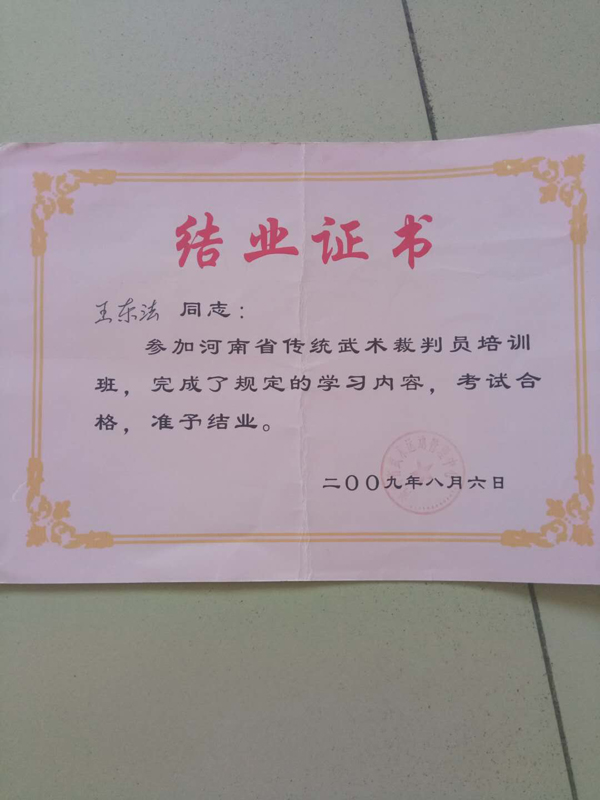 结业证书
王东法 同志：
参加河南省传统武术裁判员培训
班，完成了规定的学习内容，考试合
格，准予结业。
二00九年八月六日